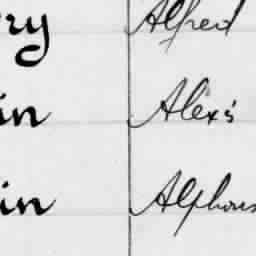 ry Alfred
in Alexis
in Alphons